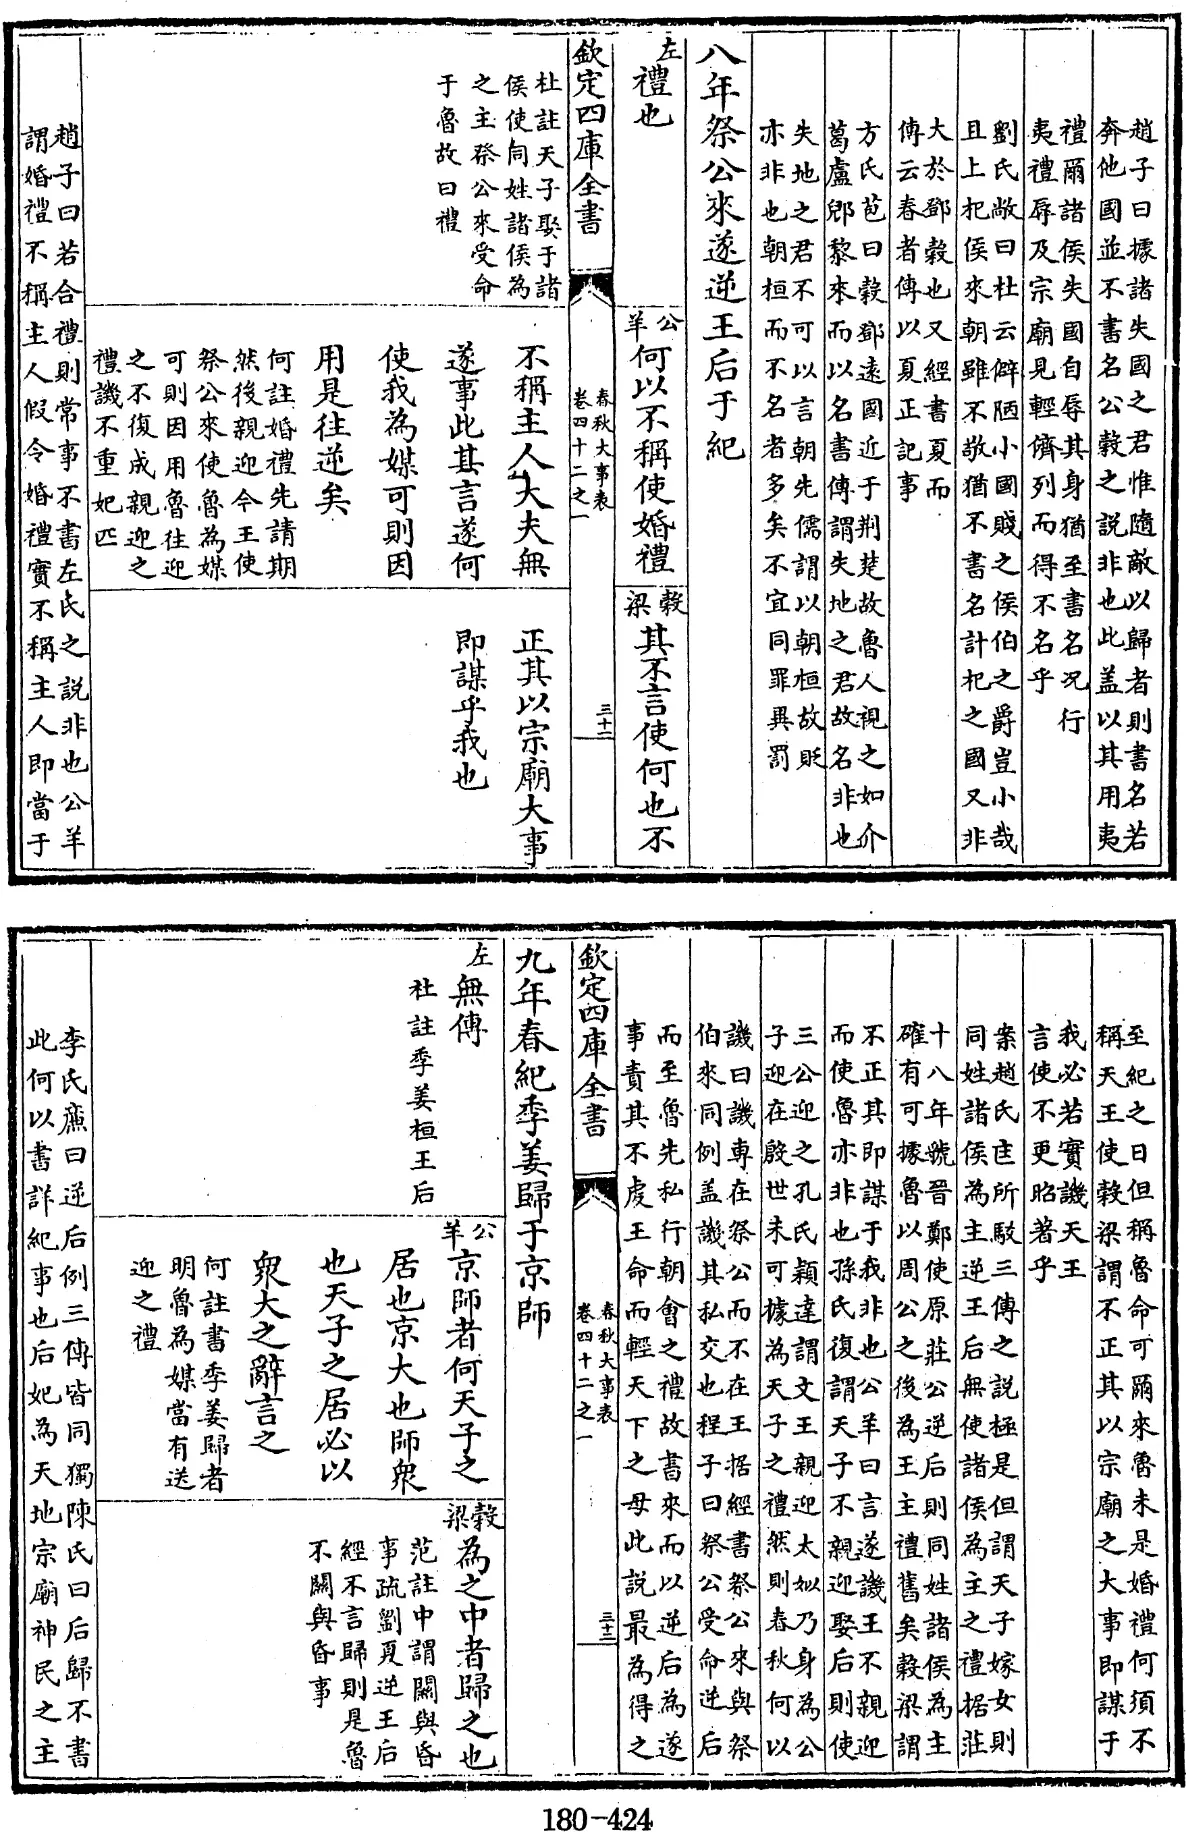 趙子曰據諸失國之君惟隨敵以歸者則書名若
奔他國並不書名公穀之説非也此盖以其用夷
禮爾諸侯失國自辱其身猶至書名况行
夷禮辱及宗廟見輕儕列而得不名乎
劉氏敞曰杜云僻陋小國賤之侯伯之爵豈小哉
且上杞侯來朝雖不敬猶不書名計杞之國又非
大於鄧穀也又經書夏而
傳云春者傳以夏正記事
方氏苞曰穀鄧遠國近于荆楚故魯人視之如介
葛盧郳黎來而以名書傳謂失地之君故名非也
失地之君不可以言朝先儒謂以朝桓故貶
亦非也朝桓而不名者多矣不宜同罪異罰
八年祭公來遂逆王后于紀
左
禮也
杜註天子娶于諸
侯使同姓諸侯為
之主祭公來受命
于魯故曰禮
公羊
何以不稱使婚禮
不稱主人大夫無
遂事此其言遂何
使我為媒可則因
用是往逆矣
何註婚禮先請期
然後親迎今王使
祭公來使魯為媒
可則因用魯往迎
之不復成親迎之
禮譏不重妃匹
穀梁
其不言使何也不
正其以宗廟大事
即謀乎我也
欽定四庫全書
春秋大事表
卷四十二之一
三十二
趙子曰若合禮則常事不書左氏之説非也公羊
謂婚禮不稱主人假令婚禮實不稱主人即當于
至紀之日但稱魯命可爾來魯未是婚禮何須不
稱天王使穀梁謂不正其以宗廟之大事即謀于
我必若實譏天王
言使不更昭著乎
案趙氏匡所駁三傳之説極是但謂天子嫁女則
同姓諸侯為主逆王后無使諸侯為主之禮据莊
十八年虢晉鄭使原莊公逆后則同姓諸侯為主
確有可據魯以周公之後為王主禮舊矣穀梁謂
不正其即謀于我非也公羊曰言遂譏王不親迎
而使魯亦非也孫氏復謂天子不親迎娶后則使
三公迎之孔氏穎達謂文王親迎太姒乃身為公
子迎在殷世未可據為天子之禮然則春秋何以
譏曰譏專在祭公而不在王据經書祭公來與祭
伯來同例盖譏其私交也程子曰祭公受命逆后
而至魯先私行朝會之禮故書來而以逆后為遂
事責其不虔王命而輕天下之母此説最為得之
欽定四庫全書
春秋大事表
卷四十二之一
三十三
九年春紀季姜歸于京師
左
無傳
杜註季姜桓王后
公羊
京師者何天子之
居也京大也師衆
也天子之居必以
衆大之辭言之
何註書季姜歸者
明魯為媒當有送
迎之禮
穀梁
為之中者歸之也
范註中謂關與昏
事疏劉夏逆王后
經不言歸則是魯
不關與昏事
李氏廉曰逆后例三傳皆同獨陳氏曰后歸不書
此何以書詳紀事也后妃為天地宗廟神民之主
180-424